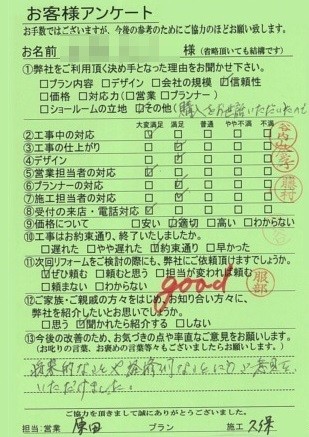 お客様アンケート
お手数ではございますが、今後の参考のためにご協力のほどお願い致します。
お名前 様 (省略頂いても結構です)
①弊社をご利用頂く決め手となった理由をお聞かせ下さい。
□プラン内容 □デザイン □会社の規模 ☑信頼性
□価格 □対応力(□営業 □プランナー)
□ショールームの立地 ☑その他(購入をお世話いただいたので
大変満足 満足 普通 やや不満 不満
②工事中の対応 □ ☑ □ □ □
③工事の仕上がり ☑ □ □ □ □
④デザイン □ ☑ □ □ □
⑤営業担当者の対応 ☑ □ □ □ □
⑥プランナーの対応 □ ☑ □ □ □
⑦施工担当者の対応 □ ☑ □ □ □
⑧受付の来店・電話対応 ☑ □ □ □ □
⑨価格について □安い ☑適切 □高い □わからない
⑩工事はお約束通り、終了いたしましたか。
□遅れた □やや遅れた ☑約束通り □早かった
⑪次回リフォームをご検討の際にも、弊社にご依頼頂けますでしょうか。
☑ぜひ頼む □頼むと思う □担当が変われば頼む
□頼まない □わからない
good
服部
藤村
⑫ご家族・ご親戚の方々をはじめ、お知り合い方々に、
弊社を紹介したいとお思いでしょうか。
□思う ☑聞かれたら紹介する □しない
⑬今後の改善のため、お気づきの点や率直なご意見をお願いします。
(お叱りの言葉、お褒めの言葉等々もございましたらお願いします。)
いただけました。
ご協力を頂きまして誠にありがとうございました。
担当:営業 原田 プラン 施工 久保